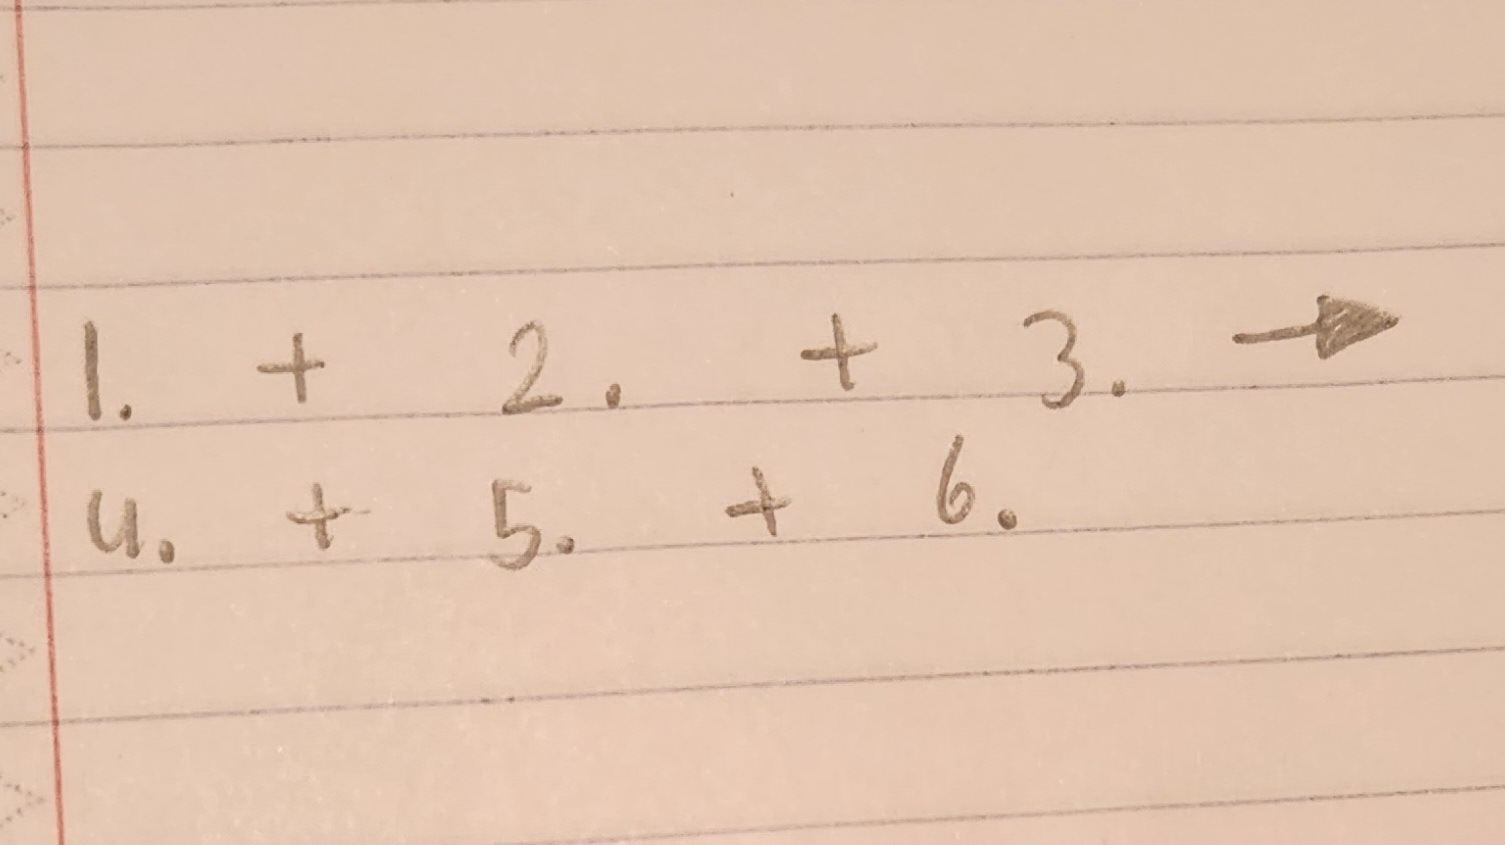 1. + 2. + 3. →
4. + 5. + 6.